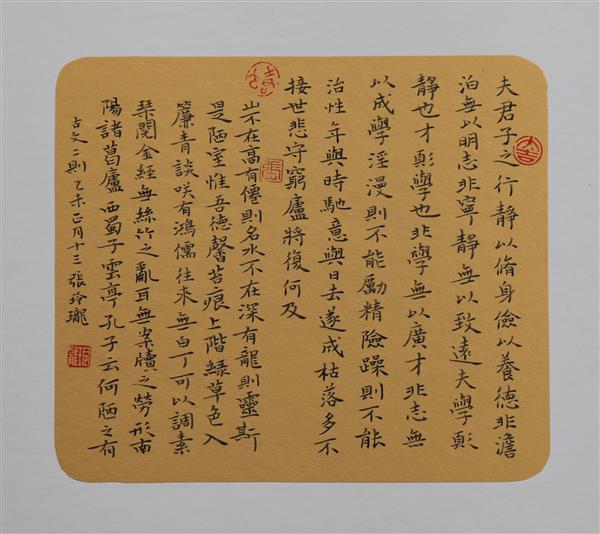 夫君子之行靜以脩身儉以養德非澹
泊無以明志非寧靜無以致遠夫學須
靜也才須學也非學無以廣才非志無
以成學淫漫則不能勵精險躁則不能
治性年與時馳意與日去遂成枯落多不
接世悲守窮廬將復何及
山不在高有僊則名水不在深有龍則靈斯
是陋室惟吾德馨苔痕上階綠草色入
簾青談咲有鴻儒往來無白丁可以調素
琴閱金經無絲竹之亂耳無案牘之勞形南
陽諸葛廬西蜀子雲亭孔子云何陋之有
古文二則乙未正月十三張玲瓏
大吉
張